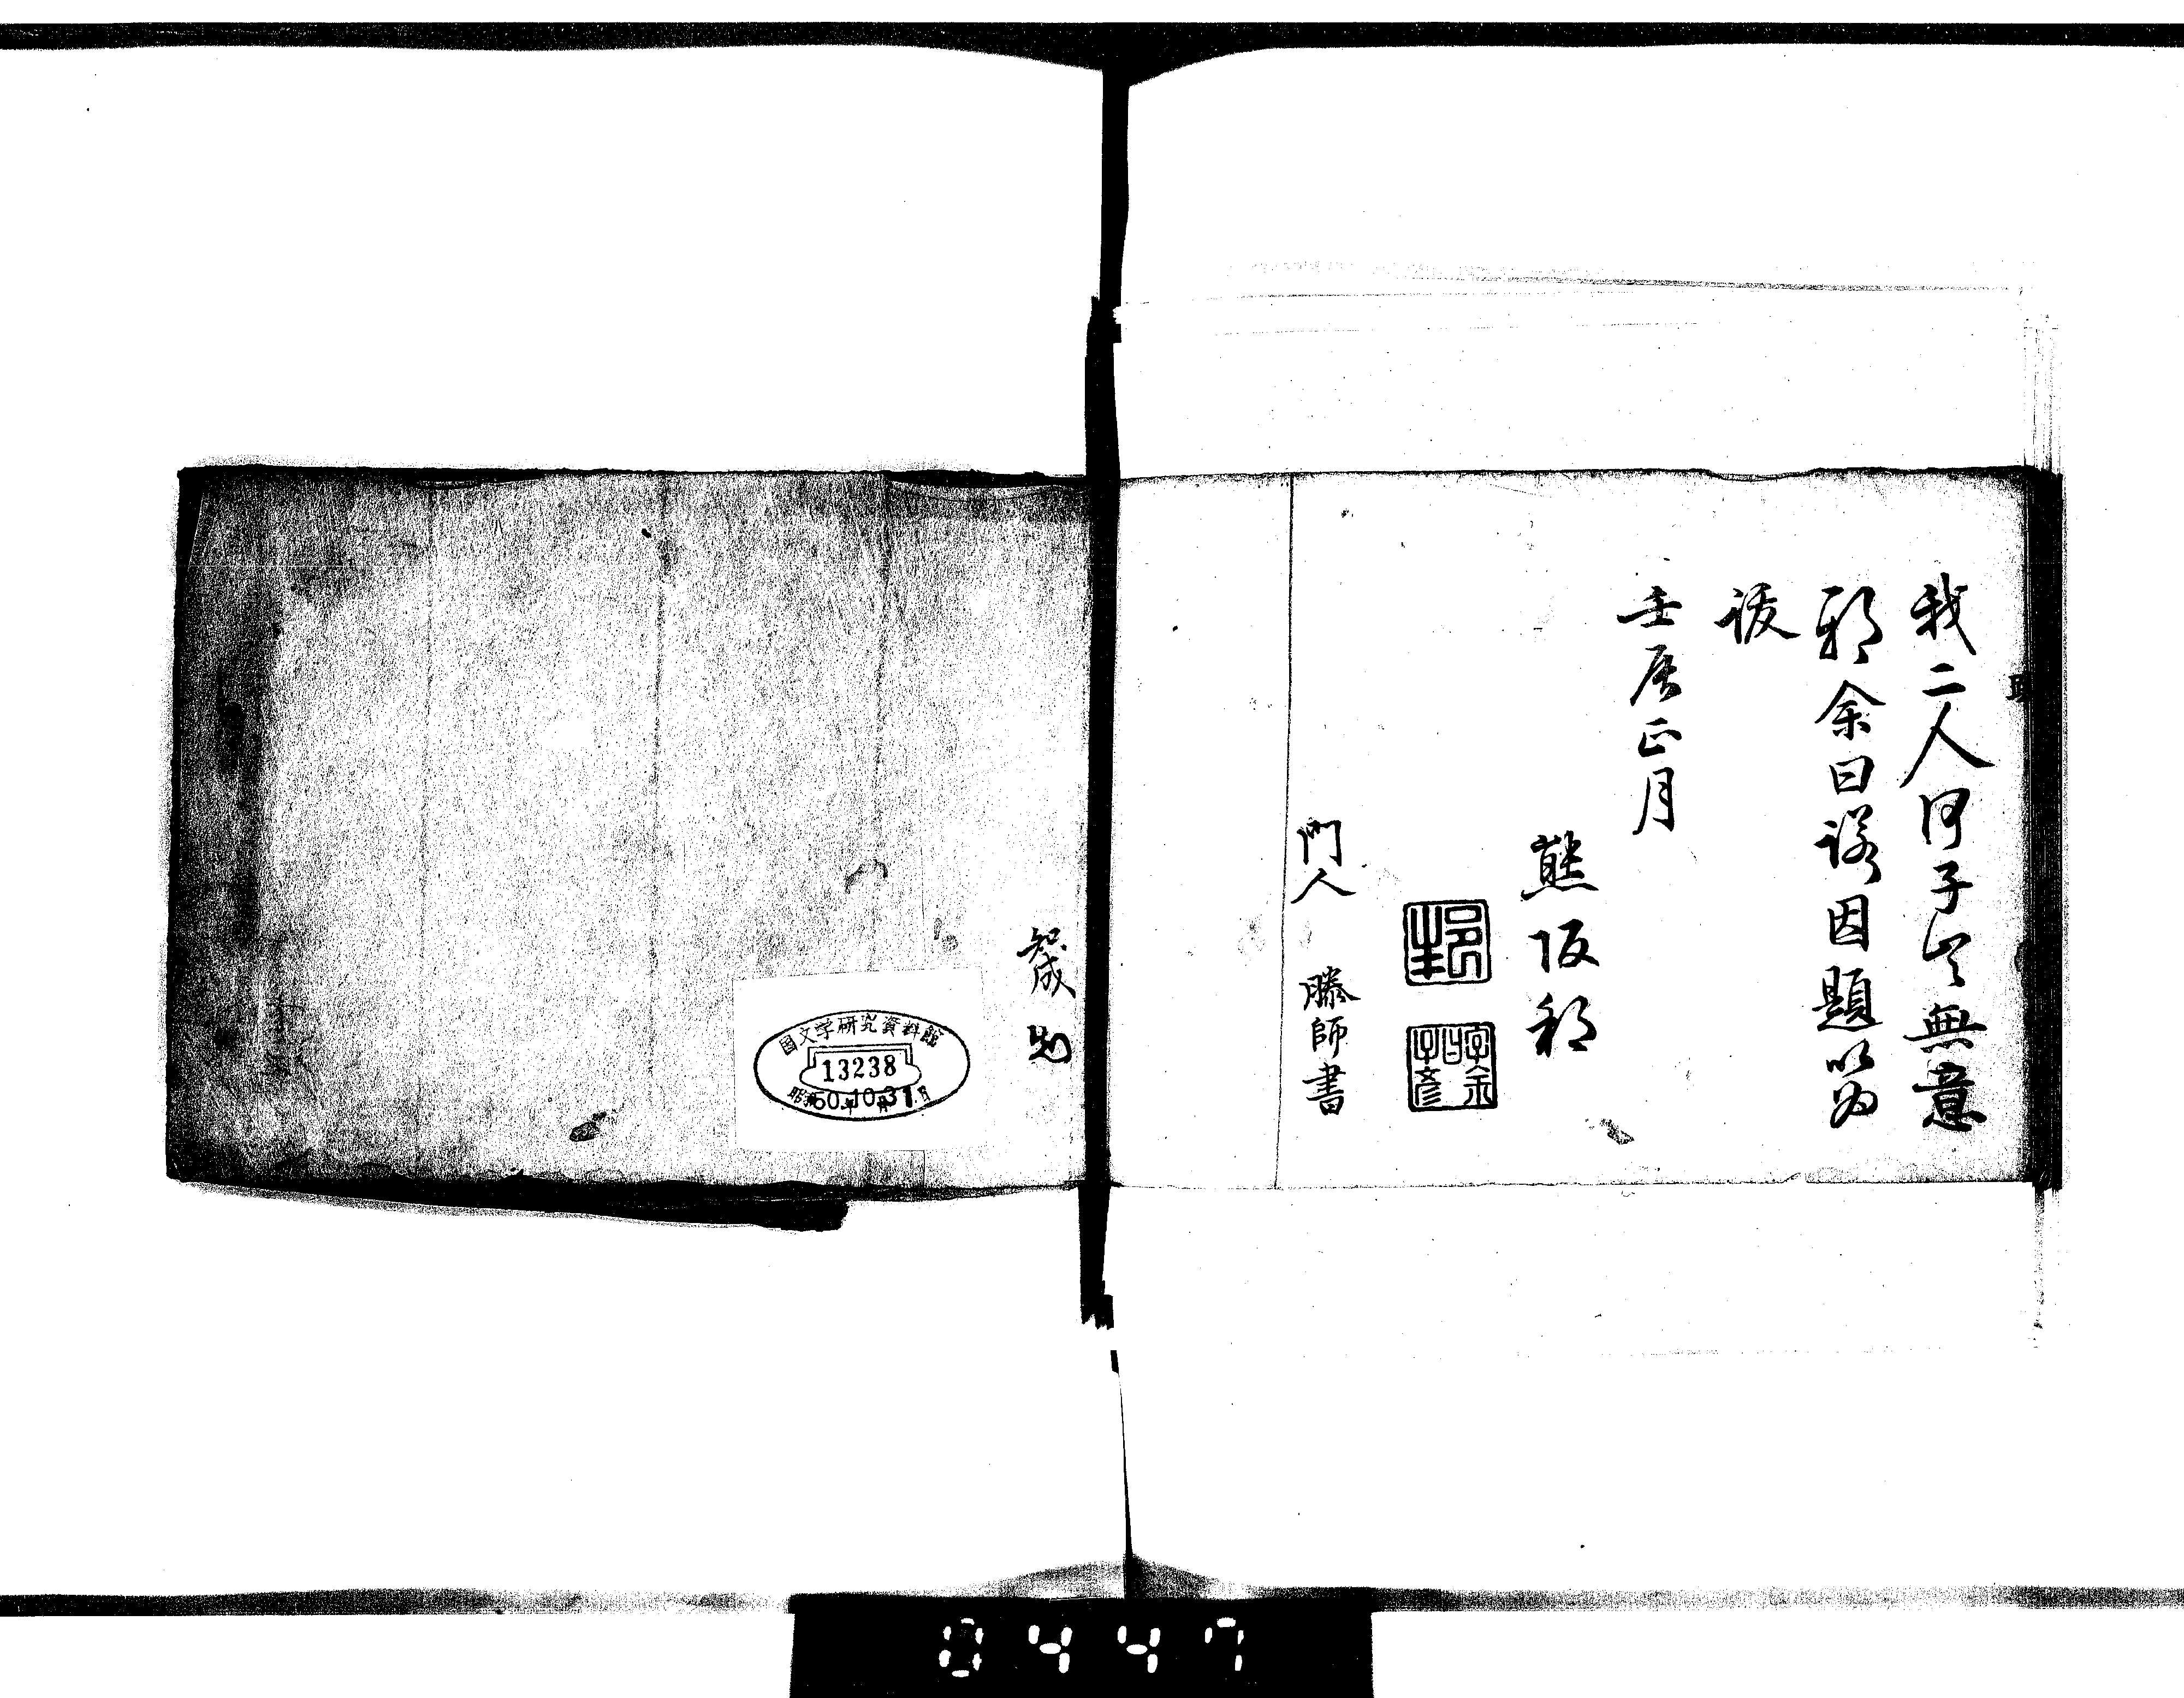 我二人何子豈無意
邪余曰諾因題以為
跋
壬辰正月
熊阪邦
門人 滕師書
國文学研究資料館
13238
昭和50年10月31日
0447